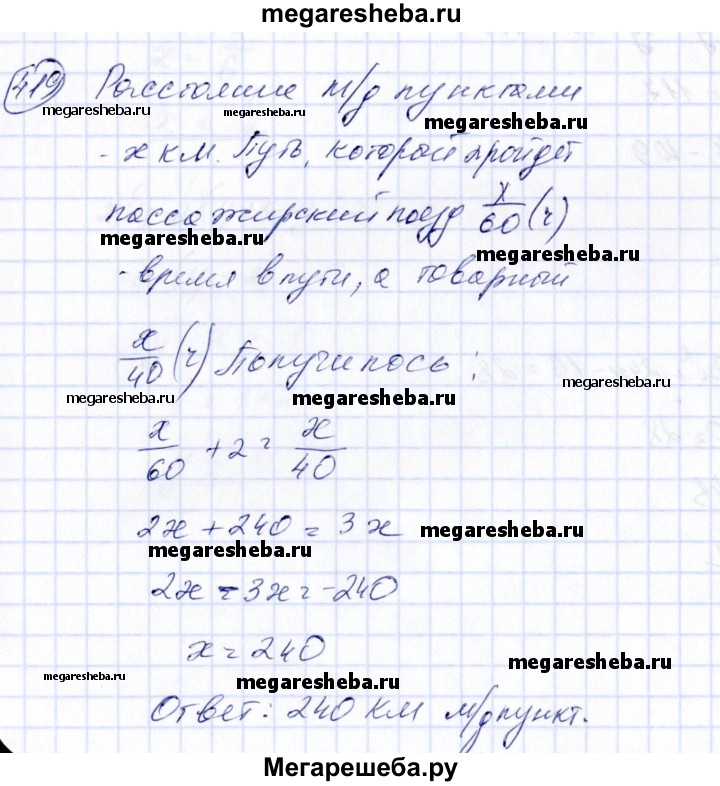 megaresheba.ru
419 Расстояние м/д пунктами
megaresheba.ru megaresheba.ru megaresheba.ru
- x км. Путь, который пройдет
пассажирский поезд x/60 (ч)
megaresheba.ru megaresheba.ru
- время в пути, а товарный
x/40 (ч) Получилось:
megaresheba.ru megaresheba.ru megaresheba.ru
x/60 + 2 = x/40
2x + 240 = 3x megaresheba.ru
megaresheba.ru
2x - 3x = -240
x = 240
megaresheba.ru megaresheba.ru megaresheba.ru
Ответ: 240 км м/д пункт.
Мегарешеба.ру